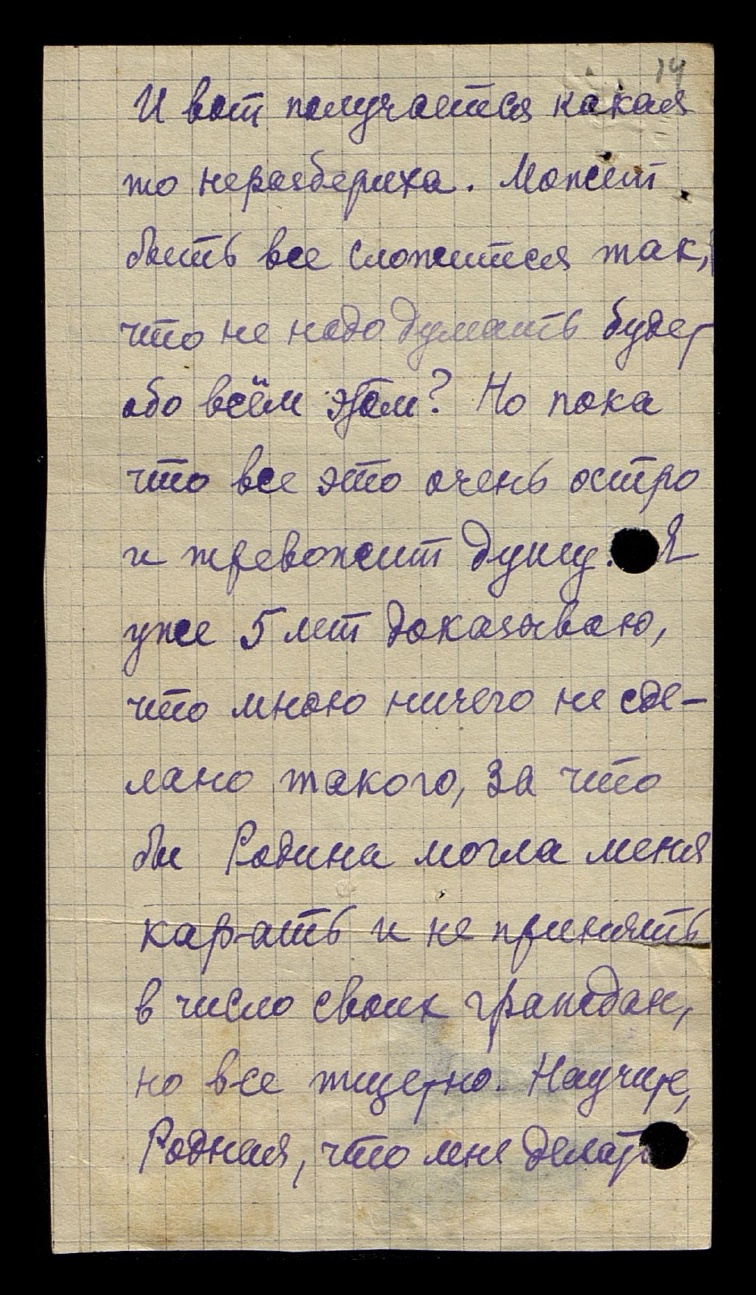 14
И вот получается какая
то неразбериха. Может
быть все сложится так,
что не надо думать будет
обо всём этом? Но пока
что все это очень остро
и тревожит душу. Я
уже 5 лет доказываю,
что мною ничего не сде-
лано такого, за что
бы Родина могла меня
карать и не принять
в число своих граждан,
но все тщетно. Научите,
Родная, что мне делать